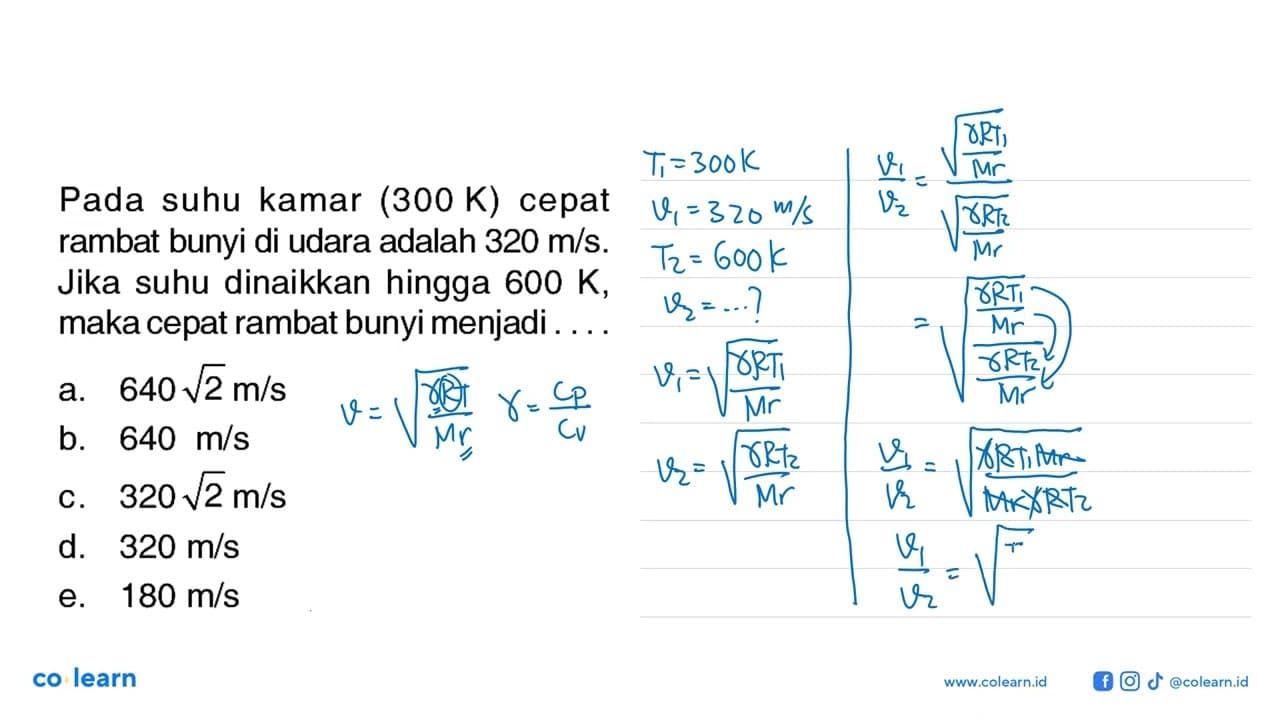 Pada suhu kamar (300 K) cepat
rambat bunyi di udara adalah 320 m/s.
Jika suhu dinaikkan hingga 600 K,
maka cepat rambat bunyi menjadi . . . .
a. 640 √2 m/s
b. 640 m/s
c. 320 √2 m/s
d. 320 m/s
e. 180 m/s
v = √(γRT/Mr) γ = Cp/Cv
T₁ = 300 K
v₁ = 320 m/s
T₂ = 600 K
v₂ = ...?
v₁ = √(γRT₁/Mr)
v₂ = √(γRT₂/Mr)
v₁/v₂ = √(γRT₁/Mr) / √(γRT₂/Mr)
= √((γRT₁/Mr)/(γRT₂/Mr))
v₁/v₂ = √(γRT₁Mr/MrγRT₂)
v₁/v₂ = √
co learn
www.colearn.id
@colearn.id